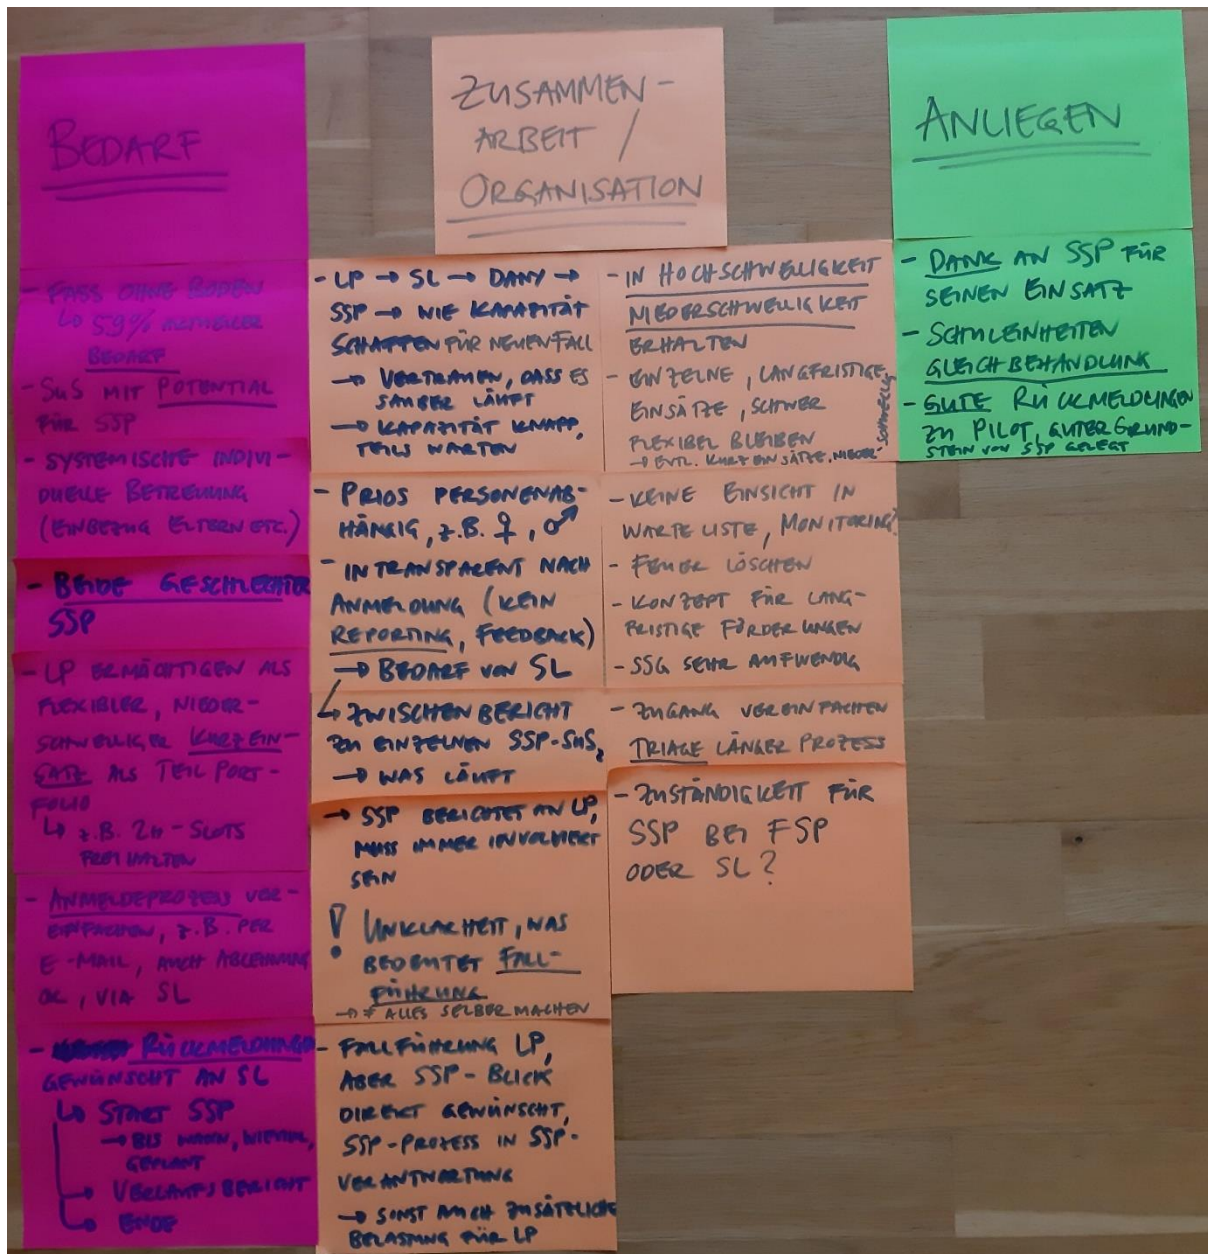 BEDARF
- FASS OHNE BODEN
↳ 59% AKTUELLER
BEDARF
- SuS MIT POTENTIAL
FÜR SSP
- SYSTEMISCHE INDIVI-
DUELLE BETREUUNG
(EINBEZUG ELTERN ETC.)
- BEIDE GESCHLECHTER
SSP
- LP ERMÄCHTIGEN ALS
FLEXIBLER, NIEDER-
SCHWELLIGER KURZEIN-
SATZ ALS TEIL PORT-
FOLIO
↳ z.B. 2H-SLOTS
FREI HALTEN
- ANMELDEPROZESS VER-
EINFACHEN, z.B. PER
E-MAIL, AUCH ABLEHNUNG
OK, VIA SL
- RÜCKMELDUNGEN
GEWÜNSCHT AN SL
↳ START SSP
→ BIS WANN, WIEVIEL,
GEPLANT
→ VERLAUFSBERICHT
→ ENDE
ZUSAMMEN-
ARBEIT /
ORGANISATION
- LP → SL → DANY →
SSP → WIE KAPAZITÄT
SCHAFFEN FÜR NEUEN FALL
→ VERTRAUEN, DASS ES
SAUBER LÄUFT
→ KAPAZITÄT KNAPP,
TEILS WARTEN
- PRIOS PERSONENAB-
HÄNGIG, z.B. ♀, ♂
- INTRANSPARENT NACH
ANMELDUNG (KEIN
REPORTING, FEEDBACK)
→ BEDARF VON SL
↳ ZWISCHENBERICHT
ZU EINZELNEN SSP-SuS,
→ WAS LÄUFT
→ SSP BERICHTET AN LP,
MUSS IMMER INVOLVIERT
SEIN
! UNKLARHEIT, WAS
BEDEUTET FALL-
FÜHRUNG
→ ≠ ALLES SELBER MACHEN
- FALLFÜHRUNG LP,
ABER SSP-BLICK
DIREKT GEWÜNSCHT,
SSP-PROZESS IN SSP-
VERANTWORTUNG
→ SONST AUCH ZUSÄTZLICHE
BELASTUNG FÜR LP
- IN HOCHSCHWELLIGKEIT
NIEDERSCHWELLIGKEIT
ERHALTEN
- EINZELNE, LANGFRISTIGE
EINSÄTZE, SCHWER
FLEXIBEL BLEIBEN
→ EVTL. KURZEINSÄTZE, NIEDER-
SCHWELLIG
- KEINE EINSICHT IN
WARTELISTE, MONITORING?
- FEUER LÖSCHEN
- KONZEPT FÜR LANG-
FRISTIGE FÖRDERUNGEN
- SSG SEHR AUFWENDIG
- ZUGANG VEREINFACHEN
TRIAGE LÄNGER PROZESS
- ZUSTÄNDIGKEIT FÜR
SSP BEI FSP
ODER SL?
ANLIEGEN
- DANK AN SSP FÜR
SEINEN EINSATZ
- SCHULEINHEITEN
GLEICHBEHANDLUNG
- GUTE RÜCKMELDUNGEN
ZU PILOT, GUTER GRUND-
STEIN VON SSP GELEGT